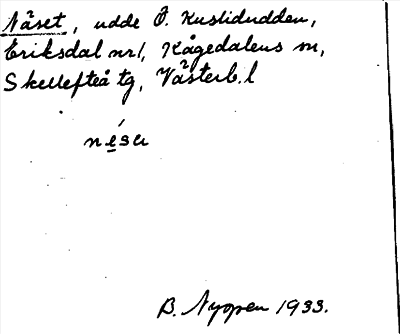 Näset, udde Ö. Kuslidudden,
Eriksdal nr1, Kågedalens sn,
Skellefteå tg, Västerb. l
nésa
B. Nyman 1933.